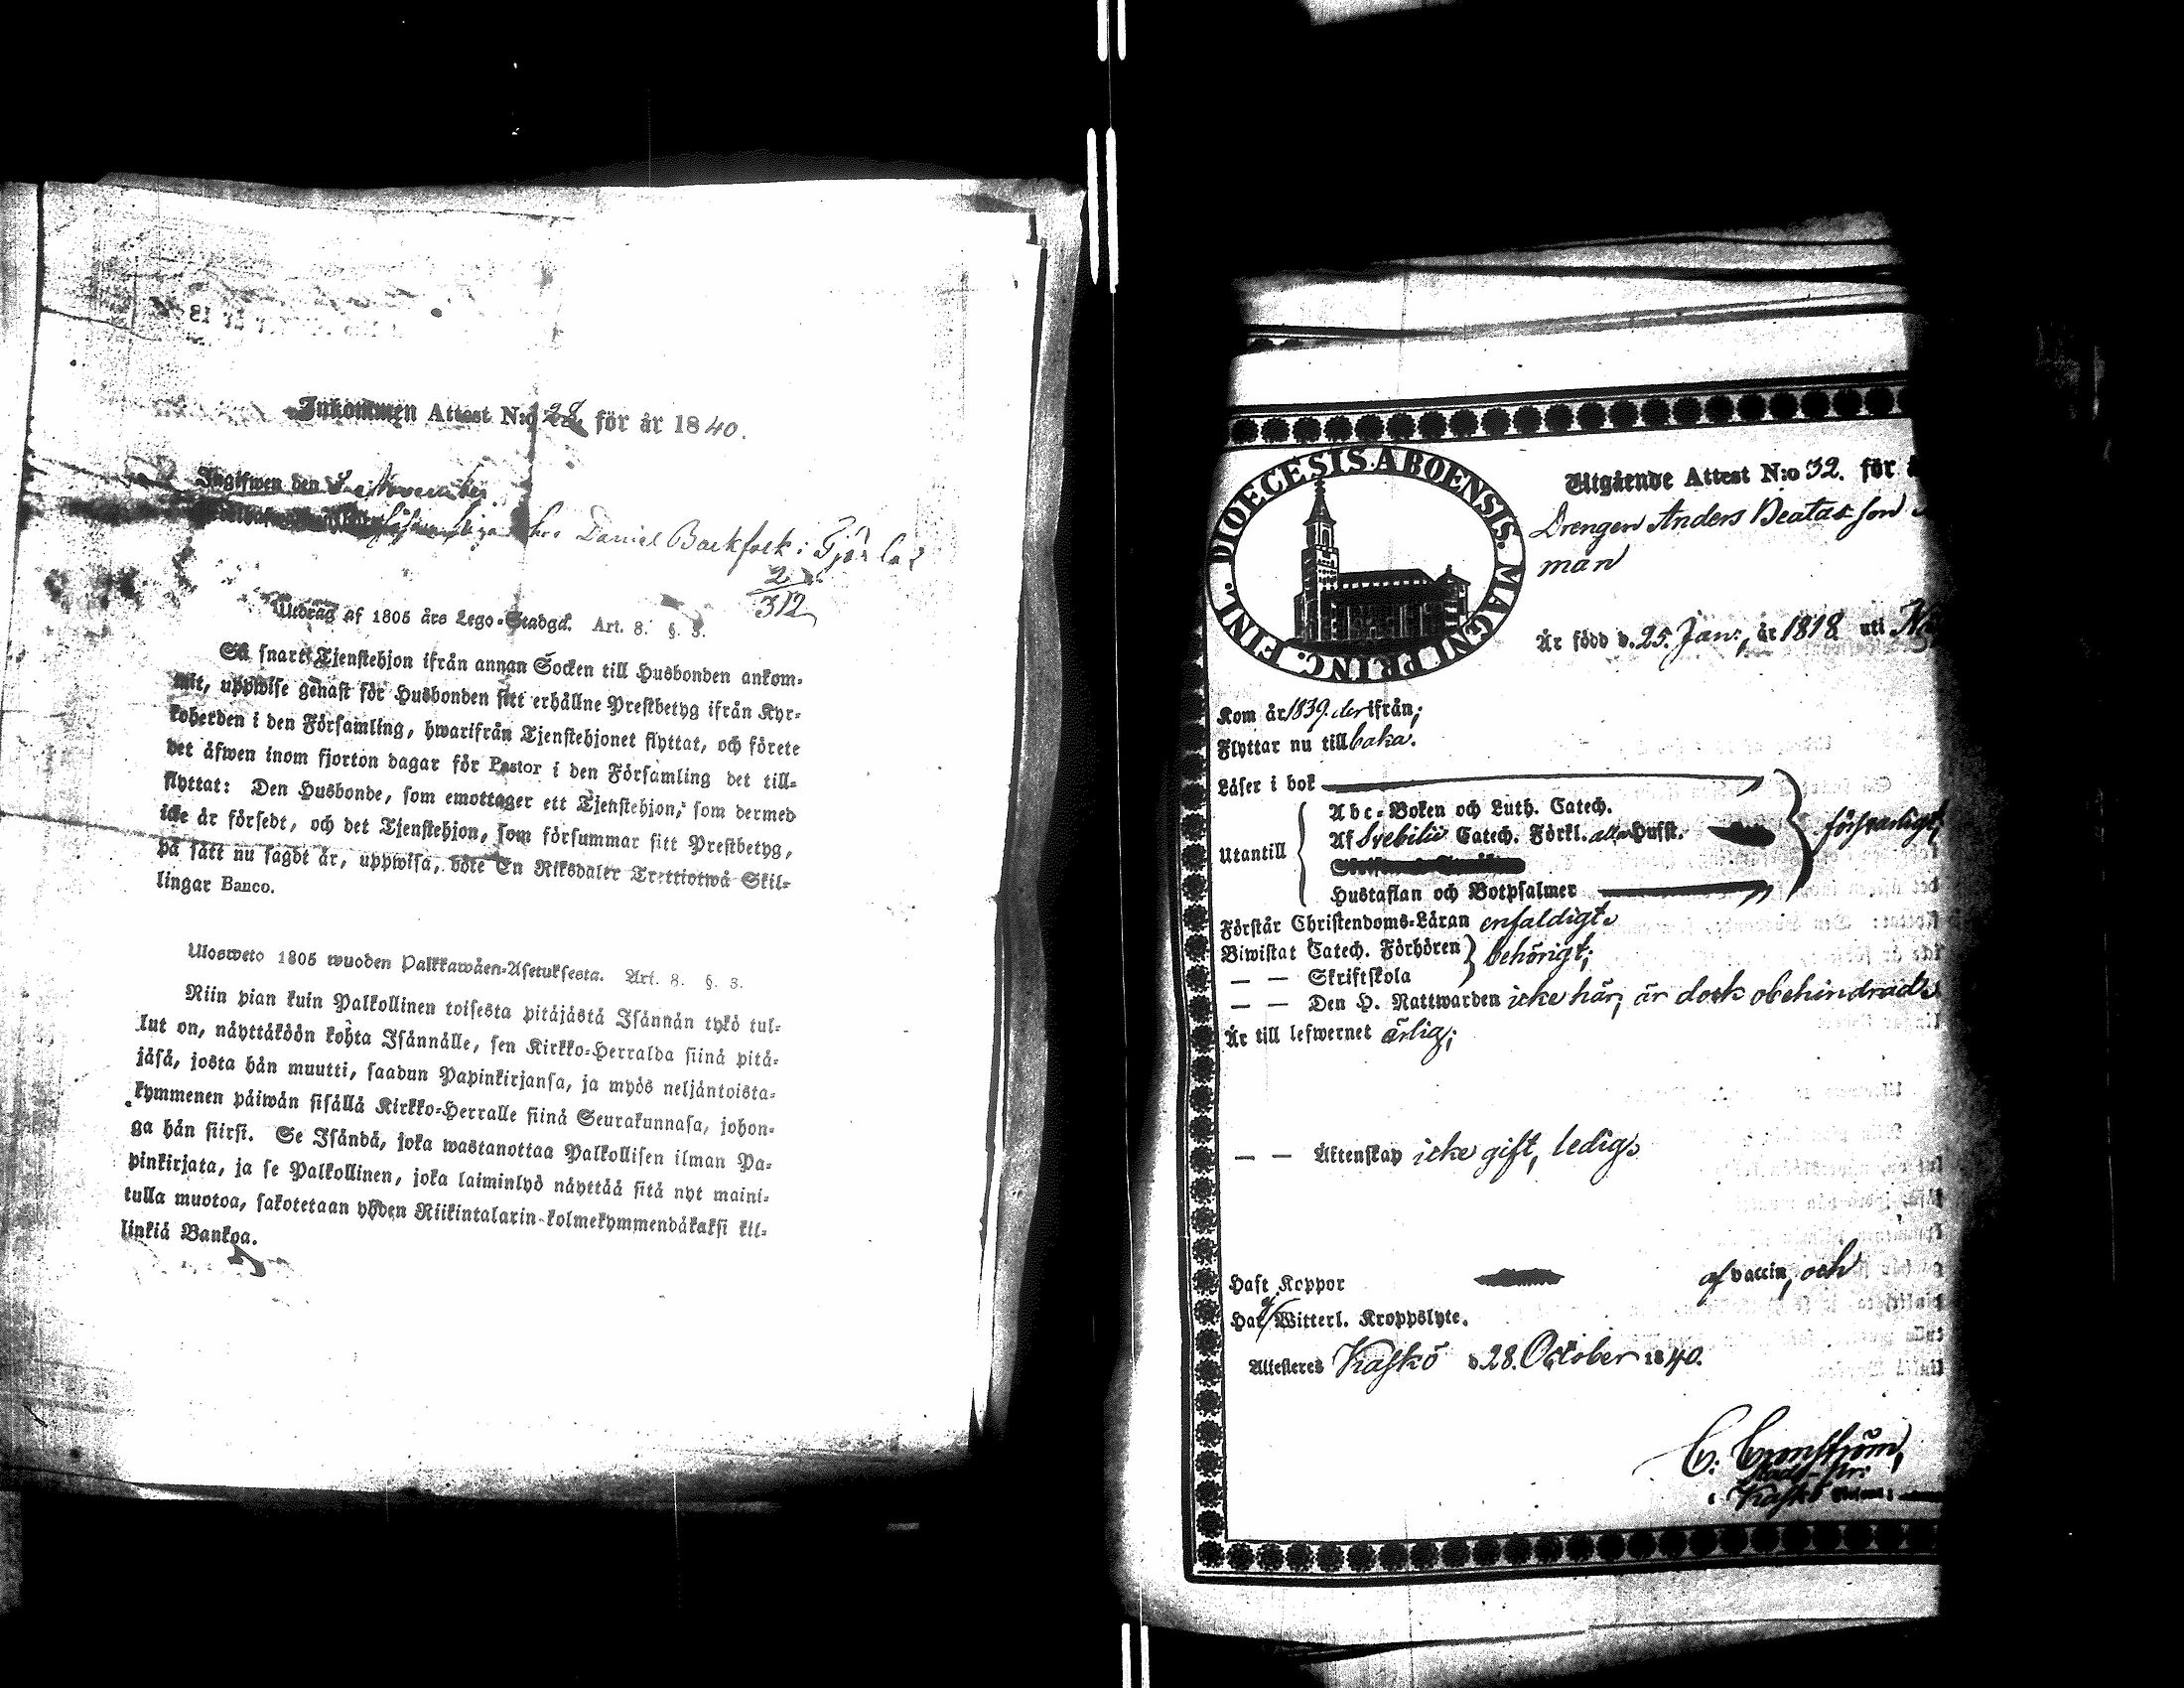 Inkommen Attest N:o 28. för år 1840.
Ingifwen den November
hos Daniel Backfolk i
2
312
Utdrag af 1805 års Lego-Stadga. Art. 8. §. 3.
Så snart Tjenstehjon ifrån annan Socken till Husbonden ankom-
mit, uppwise genast för Husbonden sitt erhållne Prestbetyg ifrån Kyr-
koherden i den Församling, hwarifrån Tjenstehjonet flyttat, och förete
det äfwen inom fjorton dagar för Pastor i den Församling det till-
flyttat: Den Husbonde, som emottager ett Tjenstehjon, som dermed
icke är försedt, och det Tjenstehjon, som försummar sitt Prestbetyg,
på sätt nu sagdt är, uppwisa, böte En Riksdaler Trettiotwå Skil-
lingar Banco.
Ulosweto 1805 wuoden Palkkawäen-Asetuksesta. Art. 8. §. 3.
Niin pian kuin Palkollinen toisesta pitäjästä Isännän tykö tul-
lut on, näyttäköön kohta Isännälle, sen Kirkko-Herralda siinä pitä-
jäsä, josta hän muutti, saadun Papinkirjansa, ja myös neljäntoista-
kymmenen päiwän sisällä Kirkko-Herralle siinä Seurakunnasa, johon-
ga hän siirsi. Se Isändä, joka wastanottaa Palkollisen ilman Pa-
pinkirjata, ja se Palkollinen, joka laiminlyö näyttää sitä nyt maini-
tulla muotoa, sakotetaan yhden Riikintalarin kolmekymmendäkaksi kil-
linkiä Bankoa.
DIOECESIS ABOENSIS. MAGNI PRINC. FINL.
Utgående Attest N:o 32. för
Drengen Anders Beatasson
man
Är född d. 25. Jan:, år 1818 uti
Kom år 1839. derifrån;
Flyttar nu tillbaka.
Läser i bok
Utantill
Abc-Boken och Luth. Catech.
Af Svebilii Catech. Förkl. Husst.
försvarligt;
Hustaflan och Botpsalmer
Förstår Christendoms-Läran enfaldigt.
Biwistat Catech. Förhören
— — Skriftskola
behörigt;
— — Den H. Nattwarden icke här, är dock obehindrad.
Är till lefwernet ärlig;
— — Äktenskap icke gift, ledig.
Haft Koppor af vaccin, och
Har ej Witterl. Kroppslyte.
Attesteras Kaskö d. 28. October 1840.
Kaskö